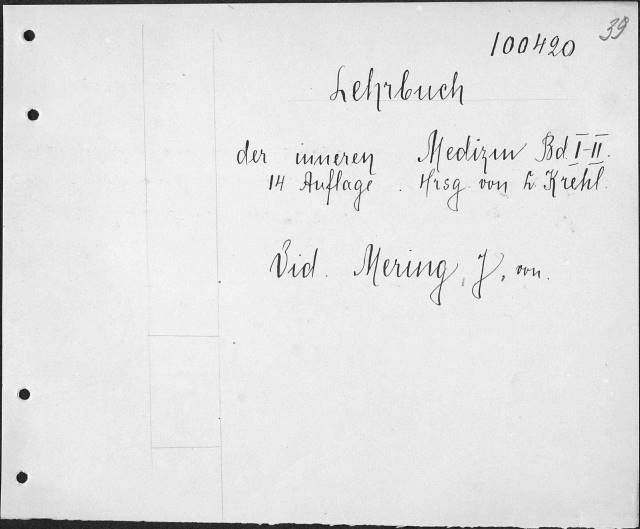 39
100420
Lehrbuch
der inneren Medizin Bd I-II.
14 Auflage. Hrsg von L. Krehl.
Vid. Mering, J. von.